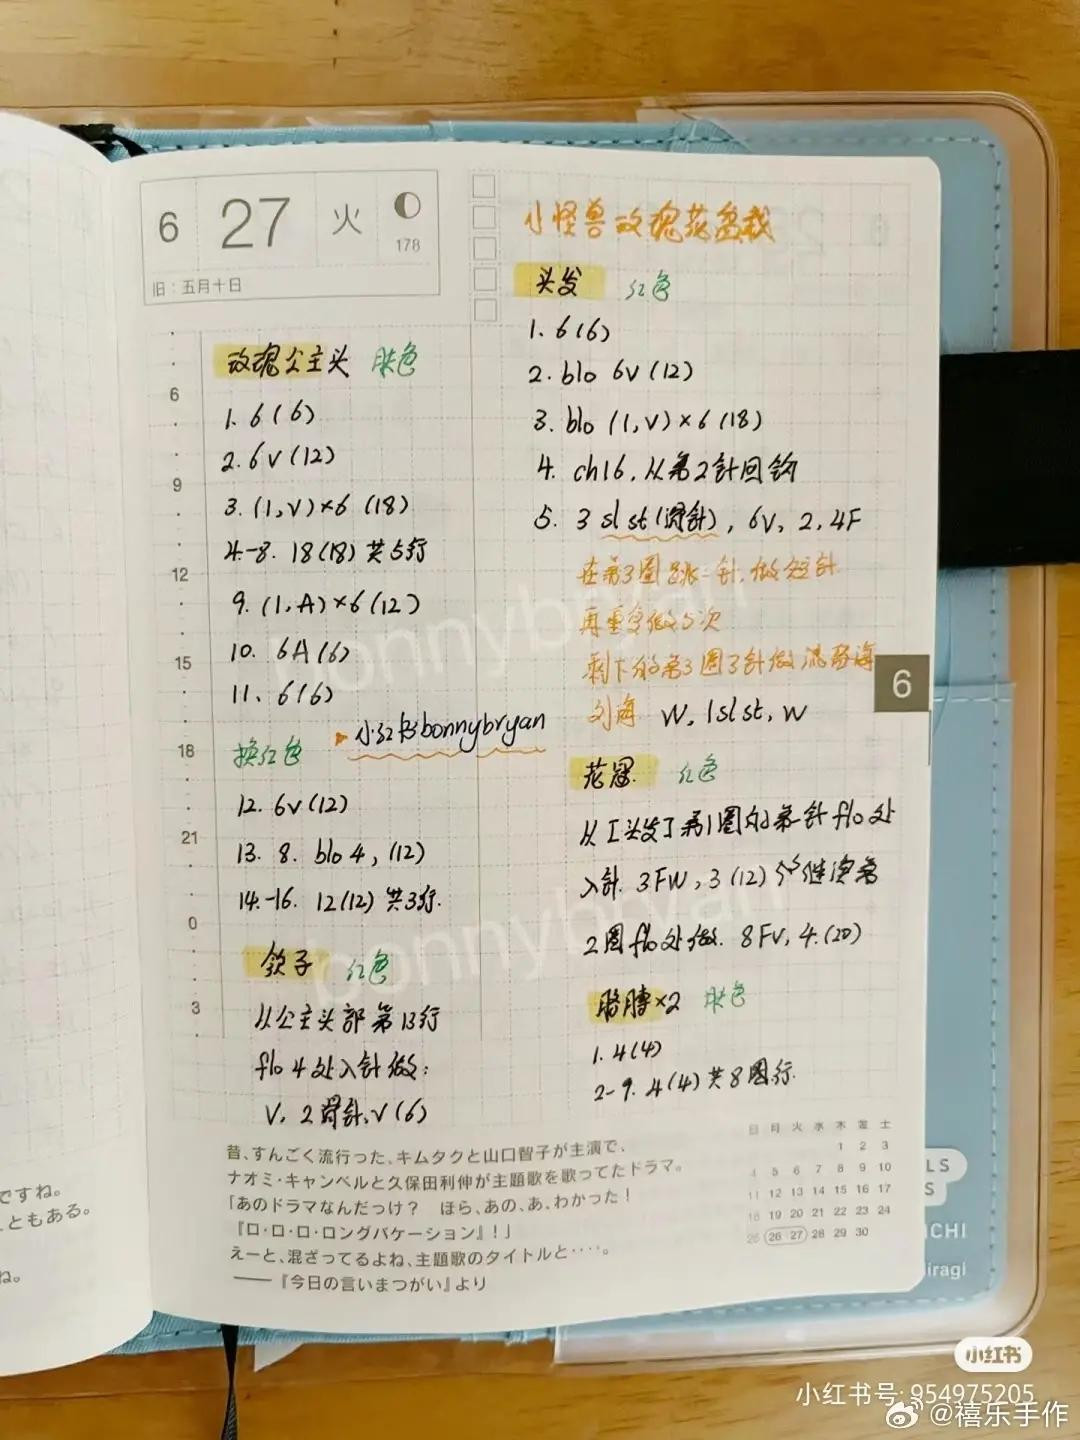 6 27 火
178
旧：五月十日
玫瑰公主头 肤色
1. 6(6)
2. 6V(12)
3. (1,V)×6 (18)
4.-8. 18(18) 共5行
9. (1,A)×6(12)
10. 6A(6)
11. 6(6)
小红书bonnybryan
换红色
12. 6V(12)
13. 8. blo 4, (12)
14.-16. 12(12) 共3行.
领子 红色
从公主头部第13行
flo 4处入针做:
V, 2滑针, V(6)
小怪兽玫瑰花盆栽
头发 红色
1. 6(6)
2. blo 6V(12)
3. blo (1,V)×6(18)
4. ch16, 从第2针回钩
5. 3 sl st(滑针), 6V, 2, 4F
在第3圈跳一针, 做短针
再重复做5次
剩下的第3圈3针做流海
刘海 W, 1slst, W
花冠 红色
从[头发]第1圈的第一针flo处
入针. 3FW, 3(12) 继续第
2圈flo处做. 8FV, 4.(20)
胳膊×2 肤色
1. 4(4)
2-9. 4(4)共8圈行.
6
9
12
15
18
21
0
3
6
bonnybryan
bonnybryan
昔、すんごく流行った、キムタクと山口智子が主演で、
ナオミ・キャンベルと久保田利伸が主題歌を歌ってたドラマ。
「あのドラマなんだっけ？ ほら、あの、あ、わかった！
『ロ・ロ・ロ・ロングバケーション』！」
えーと、混ざってるよね、主題歌のタイトルと‥‥。
──『今日の言いまつがい』より
日 月 火 水 木 金 土
1 2 3
4 5 6 7 8 9 10
11 12 13 14 15 16 17
18 19 20 21 22 23 24
25 26 27 28 29 30
ですね。
ともある。
ね。
LS
S
ICHI
iragi
小红书
小红书号: 954975205
@禧乐手作